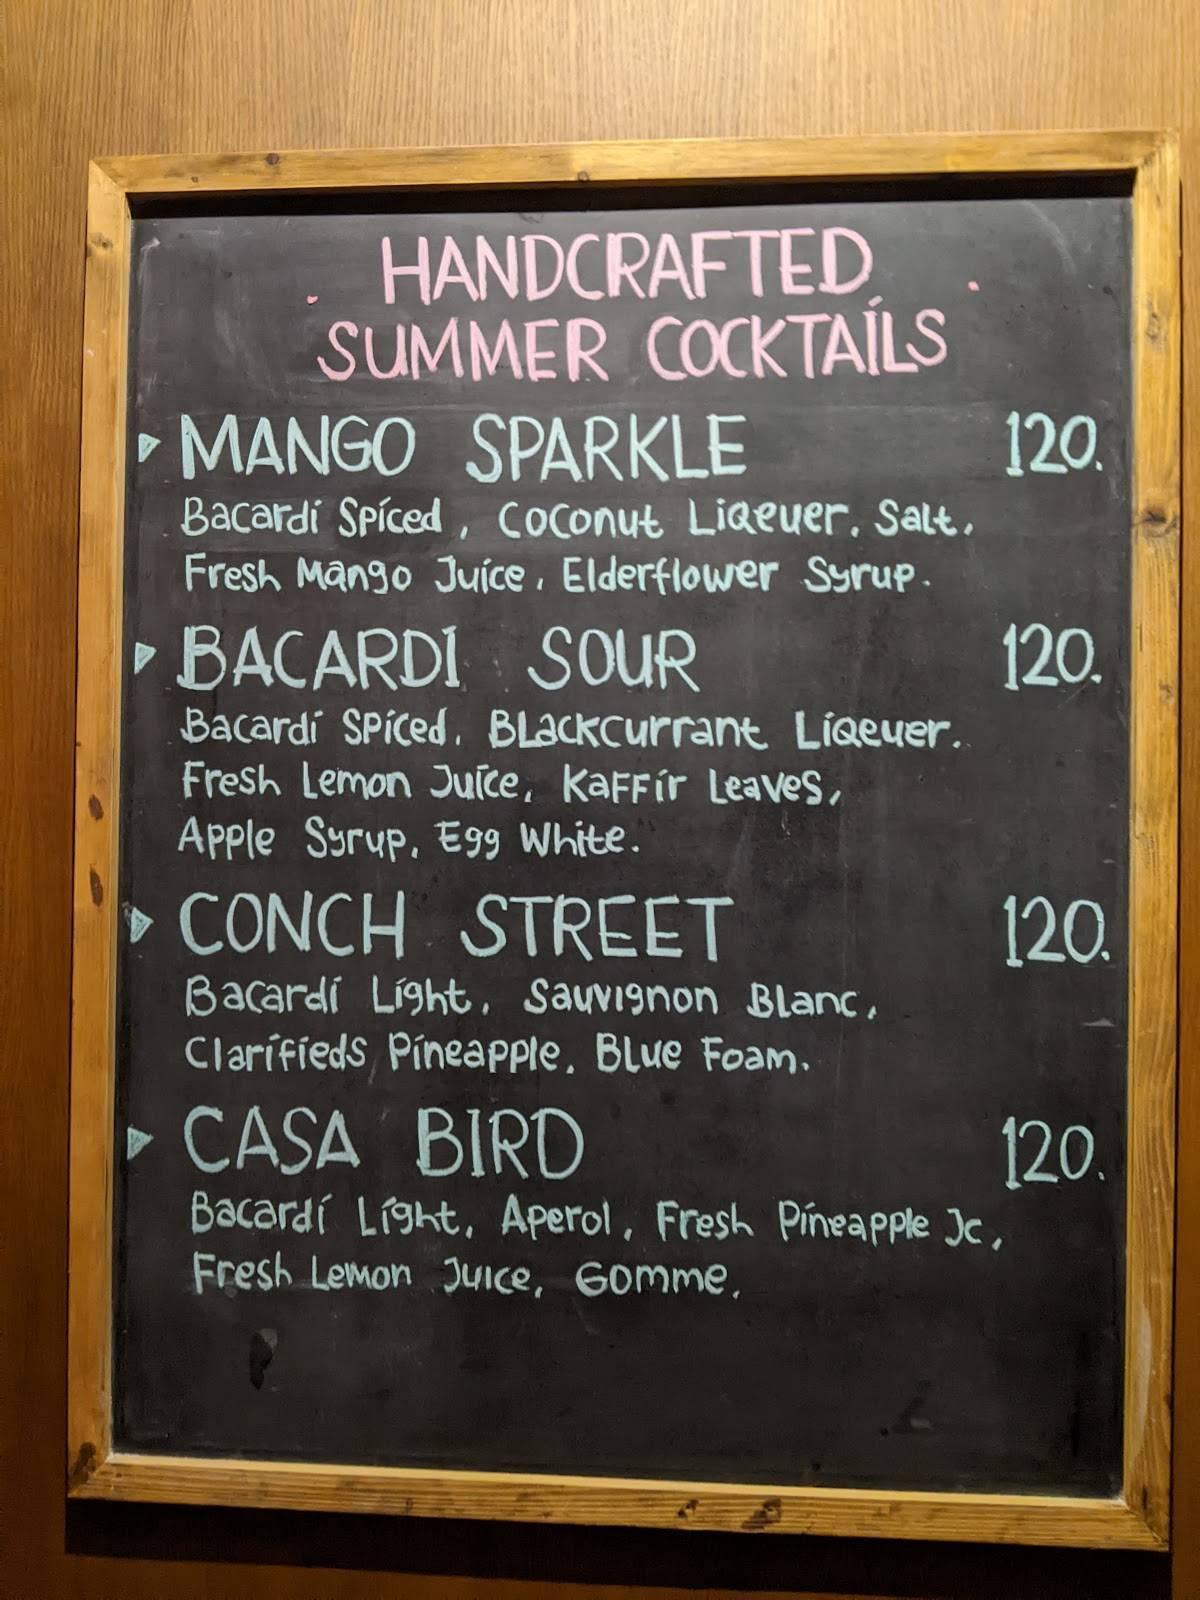 HANDCRAFTED
SUMMER COCKTAILS
MANGO SPARKLE 120.
Bacardi Spiced, Coconut Liqeuer, Salt,
Fresh Mango Juice, Elderflower Syrup.
BACARDI SOUR 120.
Bacardi Spiced, Blackcurrant Liqeuer.
Fresh Lemon Juice, Kaffir Leaves,
Apple Syrup, Egg White.
CONCH STREET 120.
Bacardi Light, Sauvignon Blanc,
Clarifieds Pineapple, Blue Foam.
CASA BIRD 120.
Bacardi Light, Aperol, Fresh Pineapple Jc,
Fresh Lemon Juice, Gomme.